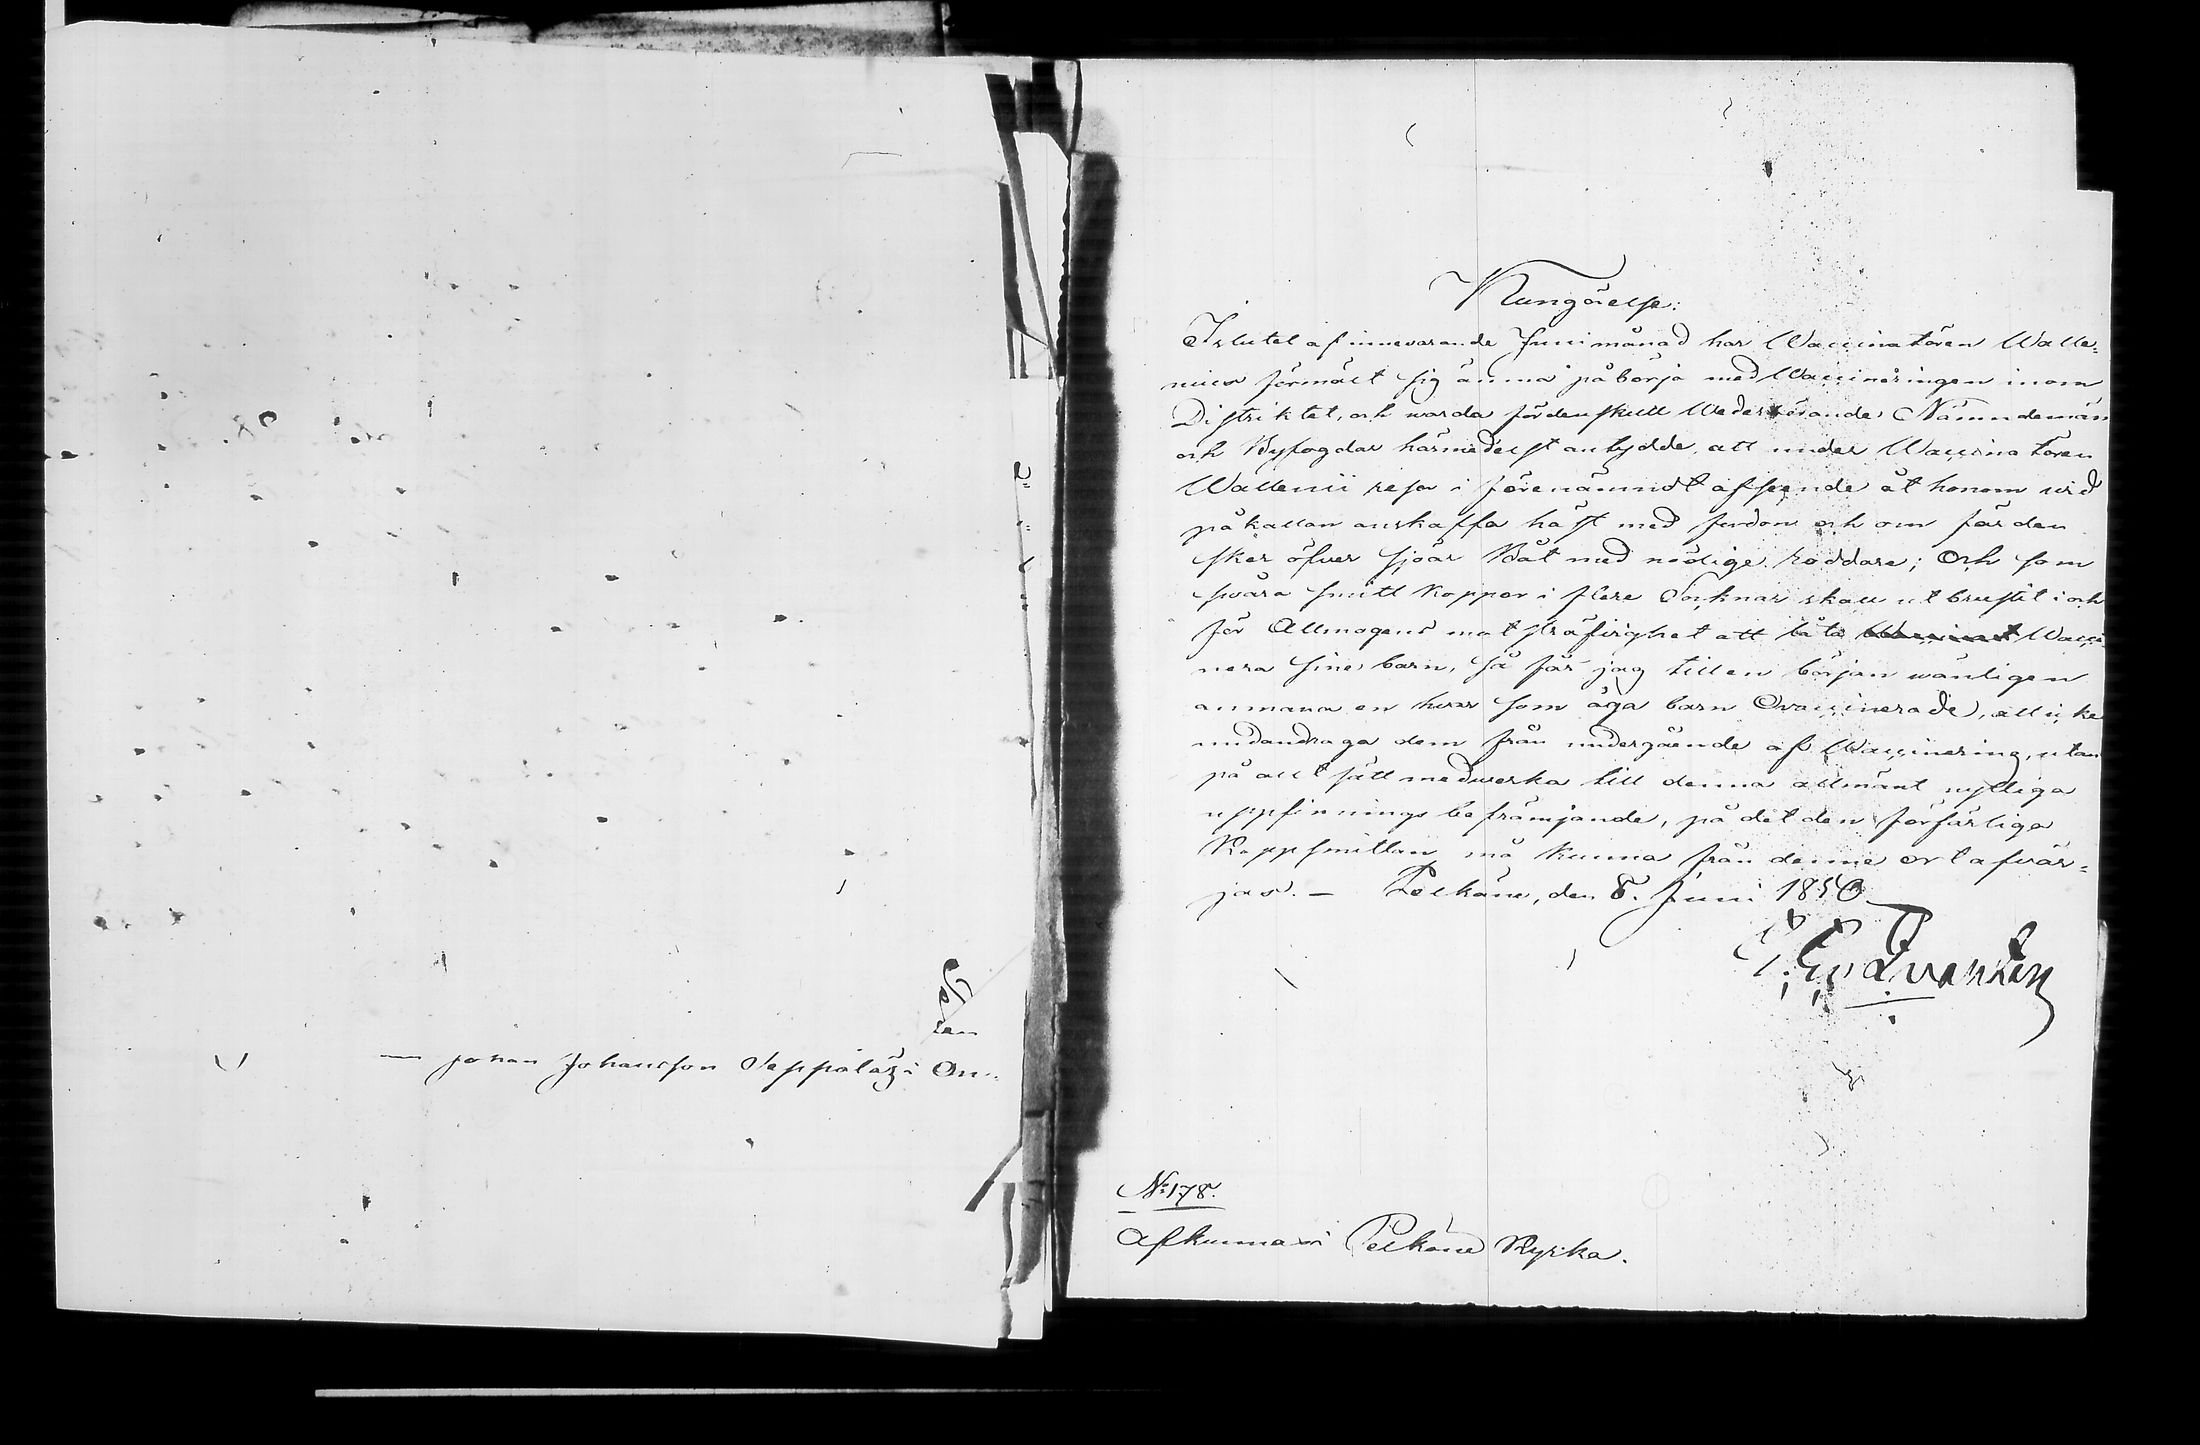 — Johan Johansson Seppälä, i On
Kungörelse:
I slutet af innevarande Junimånad har Waccinatören Walle=
nius förmält sig ämna påbörja med Waccineringen inom
Distriktet, och warda fördenskull Wederbörande Nämndemän
och Byfogdar härmedelst antydde, att under Waccinatoren
Wallenii resor i förenämndt afseende åt honom wid
påkallan anskaffa häst med fordon och om färden
sker öfver sjöar Båt med nödige roddare; Och som
svåra smittkoppor i flere Socknar skall utbrustit i och
för Allmogens motsträfvighet att låta Wacci
nera sine barn, så får jag till en början wänligen
anmana en hvar som äga barn Ovaccinerade, att icke
undandraga dem från undergående af Waccinering, utan
på allt sätt medwerka till denna allmänt nyttiga
uppfinnings befrämjande, på det den förfärliga
Koppsmittan må kunna från denne ort afvär=
jas. — Pelkäne, den 8. Juni 1850.
No 178.
Afkunnas i Pelkäne Kyrka.